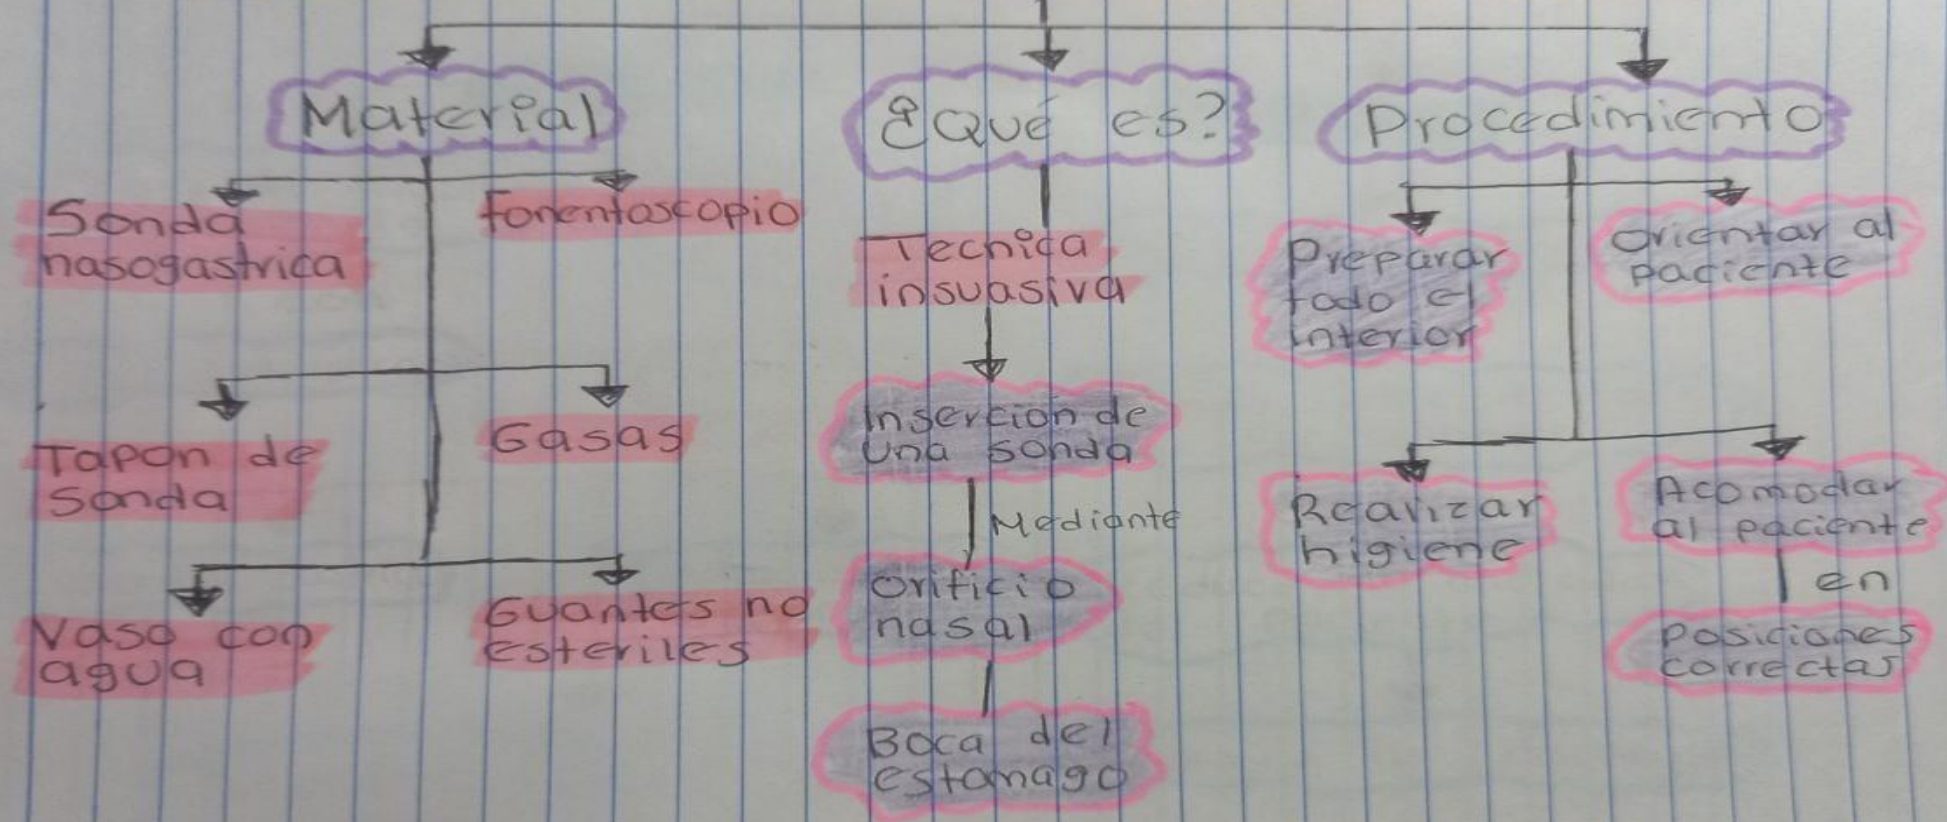 Material
Sonda
nasogastrica
fonentoscopio
Tapon de
Sonda
Gasas
Vaso con
agua
Guantes no
esteriles
¿Qué es?
Tecnica
insuasiva
Insercion de
una sonda
Mediante
Orificio
nasal
Boca del
estomago
Procedimiento
Preparar
todo el
interior
Orientar al
paciente
Realizar
higiene
Acomodar
al paciente
en
Posiciones
correctas